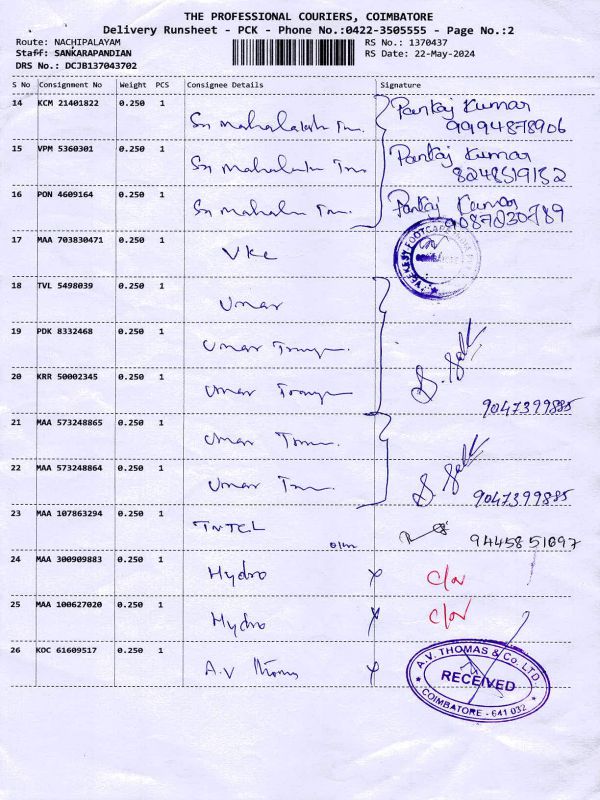 THE PROFESSIONAL COURIERS, COIMBATORE
Delivery Runsheet - PCK - Phone No.:0422-3505555 - Page No.:2
Route: NACHIPALAYAM RS No.: 1370437
Staff: SANKARAPANDIAN RS Date: 22-May-2024
DRS No.: DCJB137043702
S No Consignment No Weight PCS Consignee Details Signature
14 KCM 21401822 0.250 1 Sri Pankaj Kumar
99194878906
15 VPM 5360301 0.250 1 Sri Pankaj Kumar
8248519152
16 PON 4609164 0.250 1 Sri Pankaj Kumar
9087230789
17 MAA 703830471 0.250 1 VKC
18 TVL 5498039 0.250 1 Umar
19 PDK 8332468 0.250 1 Umar
20 KRR 50002345 0.250 1 Umar
9047399885
21 MAA 573248865 0.250 1 Umar
22 MAA 573248864 0.250 1 Umar
9047399885
23 MAA 107863294 0.250 1 TNTCL 9445851697
24 MAA 300909883 0.250 1 Hydro x C/or
25 MAA 100627020 0.250 1 Hydro x C/or
26 KOC 61609517 0.250 1 A.V Thomas x
A.V. THOMAS & Co. LTD.
RECEIVED
COIMBATORE - 641 032